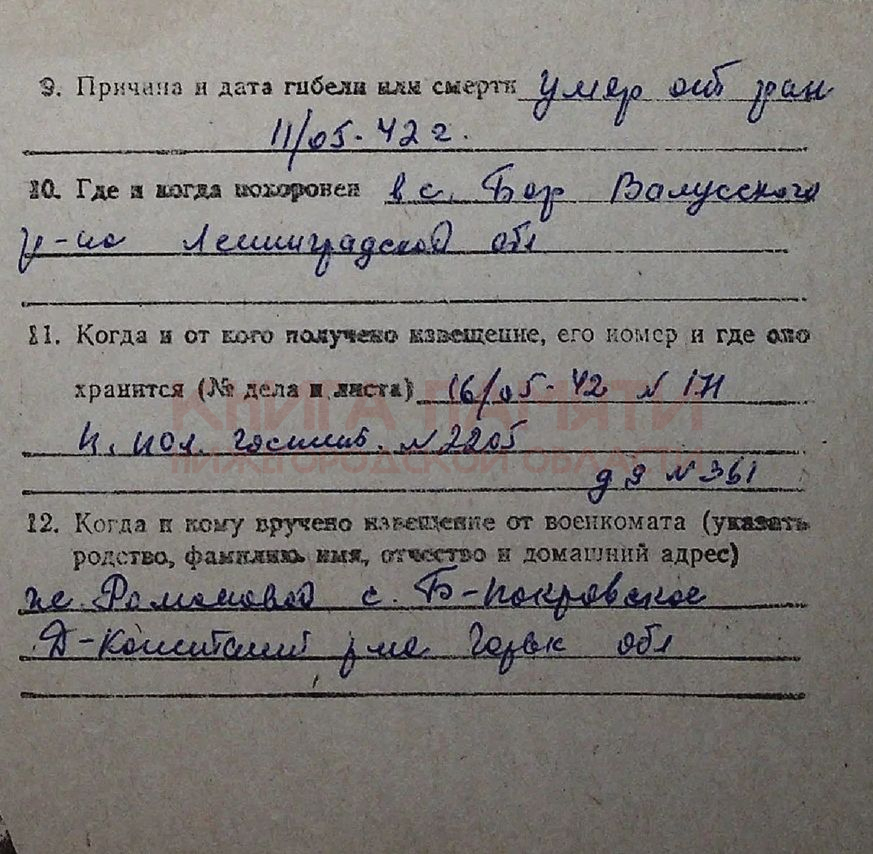 9. Причина и дата гибели или смерти умер от ран
11/05-42 г.
10. Где и когда похоронен в с. Бор Валусского
р-на Ленинградской обл
11. Когда и от кого получено извещение, его номер и где оно
хранится (№ дела и листа) 16/05-42 N
КНИГА ПАМЯТИ
госпит. N 2205
НИЖЕГОРОДСКОЙ ОБЛАСТИ
д 9 N 361
12. Когда и кому вручено извещение от военкомата (указать
родство, фамилию, имя, отчество и домашний адрес)
же. Романовой с. Б-покровское
Д-Констант р-на Горьк обл